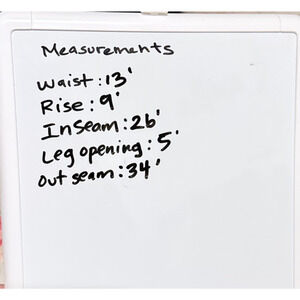 Measurements
Waist: 13'
Rise: 9'
Inseam: 26'
Leg opening: 5'
Out seam: 34'